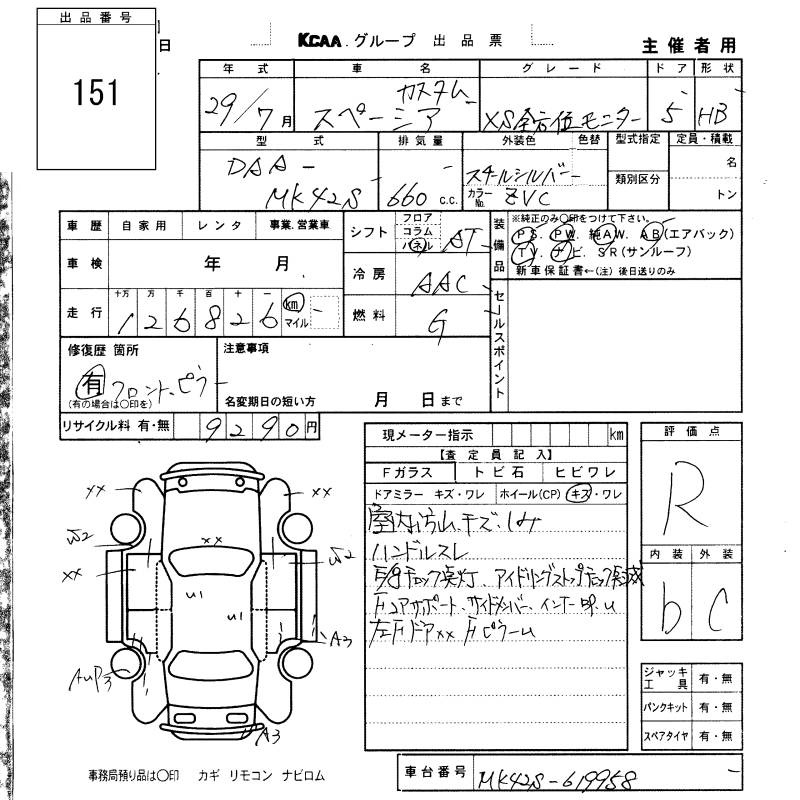 出品番号
151
日
KCAA グループ 出品票
主催者用
年式 車名 グレード ドア 形状
29/7月 スペーシア カスタム XS全方位モニター 5 HB
型式 排気量 外装色 色替 型式指定 定員・積載
DAA- MK42S 660 c.c. スチールシルバー
カラーNo. ZVC
類別区分 名 トン
車歴 自家用 レンタ 事業.営業車
シフト フロア コラム パネル AT
装備品 ※純正のみ○印をつけて下さい。
PS. PW. 純AW. AB(エアバック)
TV. ナビ. SR(サンルーフ)
新車保証書←(注)後日送りのみ
車検 年 月
冷房 AAC
走行 十万 万 千 百 十 一
126826 km マイル
燃料 G
セールスポイント
修復歴 箇所
有 フロント、ピラー
(有の場合は○印を)
注意事項
名変期日の短い方 月 日まで
リサイクル料 有・無 9290円
現メーター指示 km
【査定員記入】
Fガラス トビ石 ヒビワレ
ドアミラー キズ・ワレ ホイール(CP) キズ・ワレ
室内汚ム、キズ、シミ
ハンドルスレ
チェック点灯、アイドリングストップチェック点滅
コアサポート、サイドメンバー、インナー
左Fドアxx FピラーU
評価点
R
内装 外装
b C
ジャッキ工具 有・無
パンクキット 有・無
スペアタイヤ 有・無
xx xx
W2 W2
xx xx
U1 U1
A3
A3
事務局預り品は○印 カギ リモコン ナビロム
車台番号 MK42S-619958